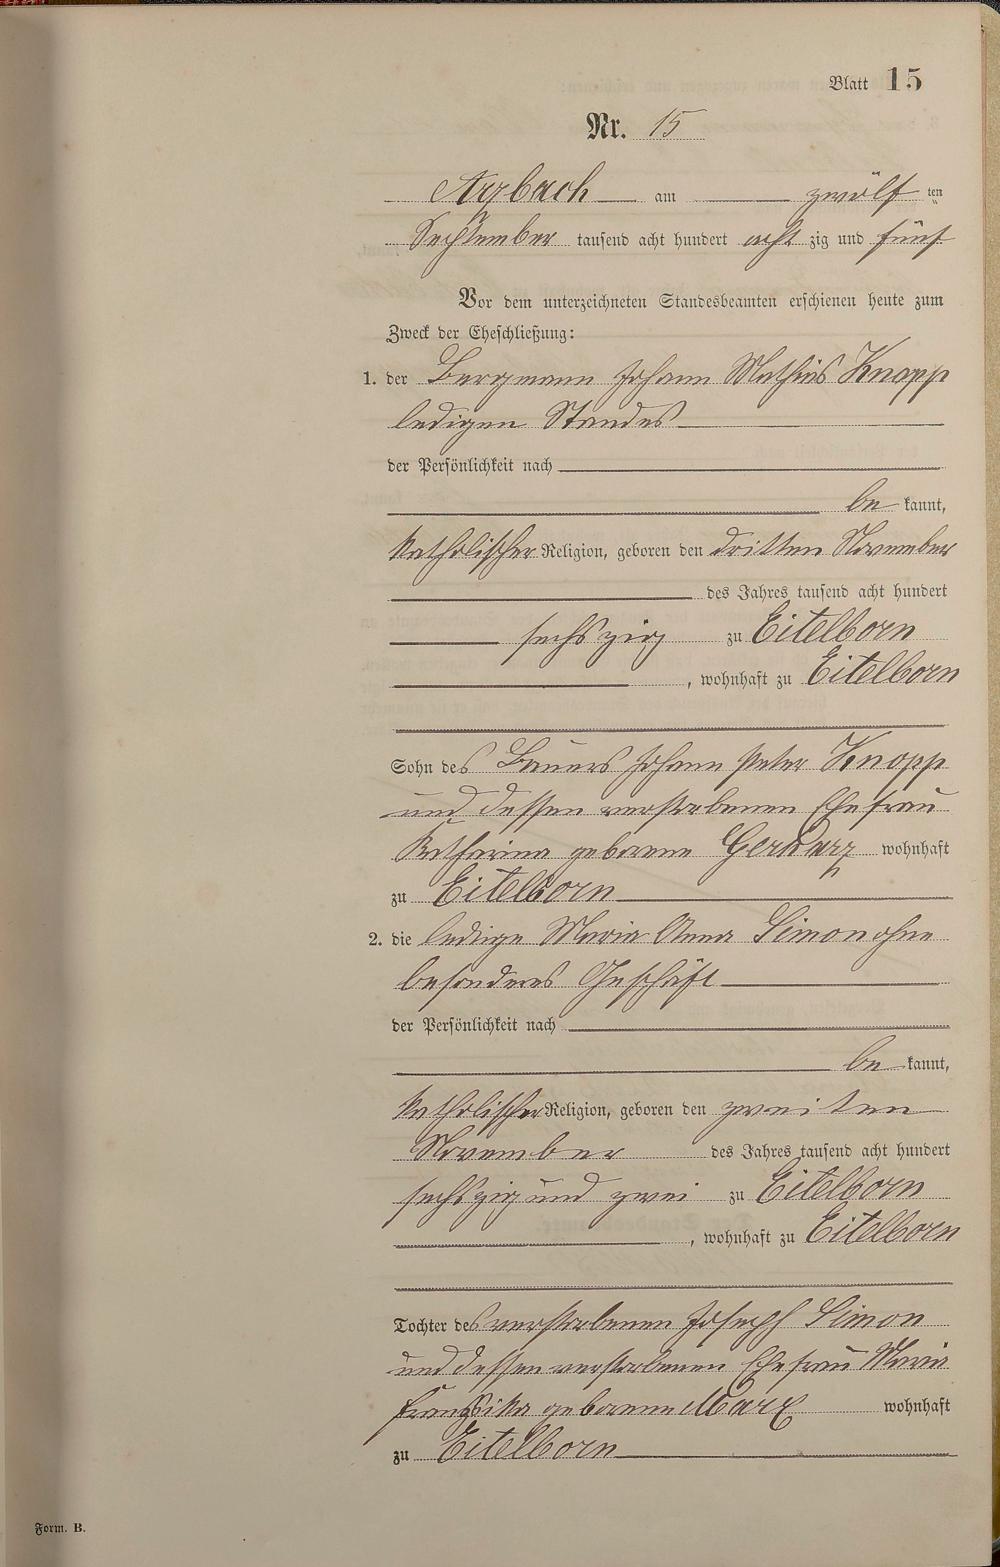 Blatt 15
Nr. 15
Arzbach am zwölf ten
September tausend acht hundert acht zig und fünf
Vor dem unterzeichneten Standesbeamten erschienen heute zum
Zweck der Eheschließung:
1. der Bergmann Johann Mathias Knopp
ledigen Standes
der Persönlichkeit nach
be kannt,
katholischer Religion, geboren den dritten November
des Jahres tausend acht hundert
sechszig zu Eitelborn
, wohnhaft zu Eitelborn
Sohn des Bauers Johann Peter Knopp
und dessen verstorbenen Ehefrau
Katharina geborene Gerharz wohnhaft
zu Eitelborn
2. die ledige Maria Anna Simon ohne
besonderes Geschäft
der Persönlichkeit nach
be kannt,
katholischer Religion, geboren den zweiten
November des Jahres tausend acht hundert
sechszig und zwei zu Eitelborn
, wohnhaft zu Eitelborn
Tochter des verstorbenen Joseph Simon
und dessen verstorbenen Ehefrau Maria
Franzsika geborene Marx wohnhaft
zu Eitelborn
Form. B.